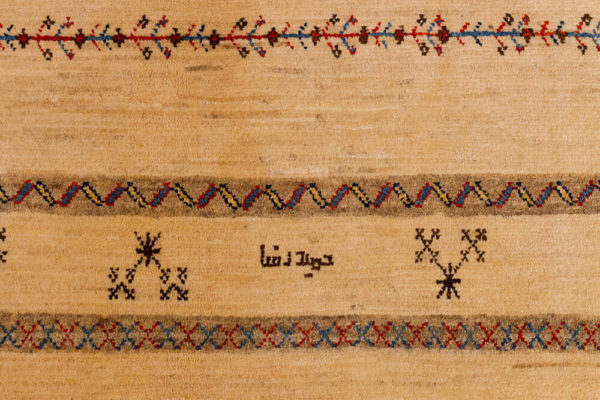 حمیدرضا